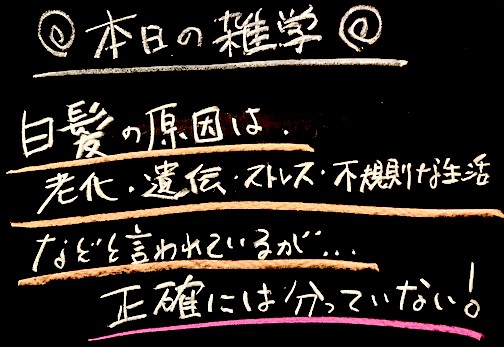 本日の雑学
白髪の原因は、
老化・遺伝・ストレス・不規則な生活
などと言われているが…
正確には分っていない!